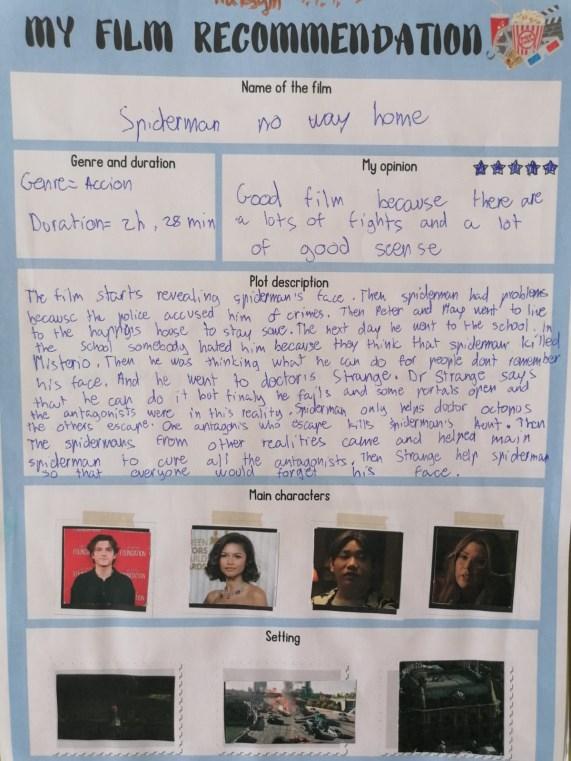 MY FILM RECOMMENDATION
Name of the film
Spiderman no way home
Genre and duration
Genre= Accion
Duration= 2h, 28 min
My opinion
Good film because there are
a lots of fights and a lot
of good scense
Plot description
The film starts revealing spiderman's face. Then spiderman had problems
because the police accused him of crimes. Then Peter and May went to live
to the happyis house to stay save. The next day he went to the school. In
the school somebody hated him because they think that spiderman killed
Misterio. Then he was thinking what he can do for people dont remember
his face. And he went to doctoris Strange. Dr Strange says
that he can do it but finaly he fails and some portals open and
the antagonists were in this reality. Spiderman only helps doctor octopus
the others escape. One antagonis who escape kills spiderman's Aunt. Then
the spidermans from other realities came and helped main
spiderman to cure all the antagonists. Then Strange help spiderman
so that everyone would forget his face.
Main characters
Setting